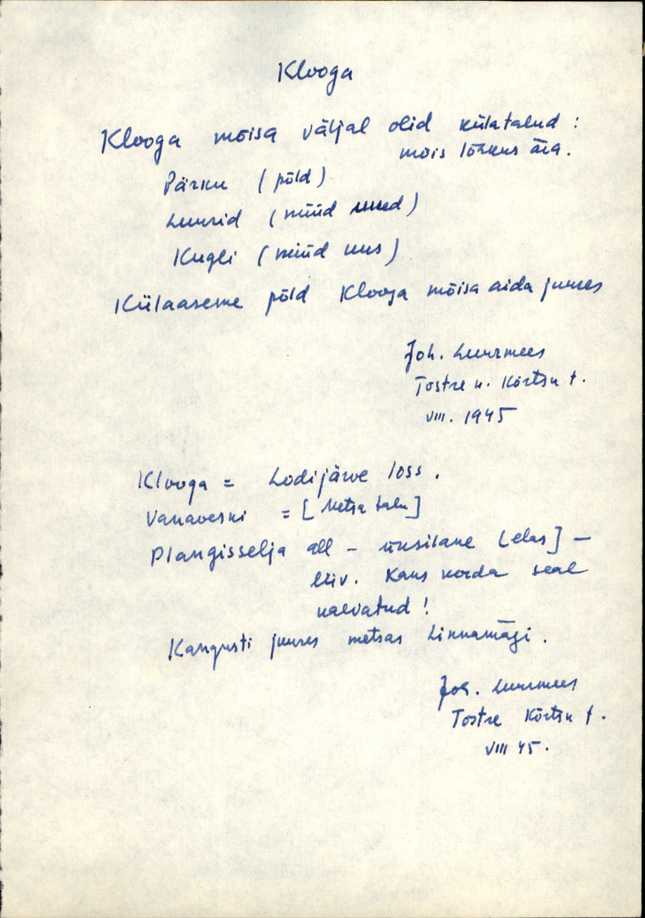 Klooga
Klooga mõisa väljal olid külatalud :
mõis lõhkus ära.
Pärnu (põld)
Luurid (nüüd uued)
Kugli (nüüd uus)
Külaaseme põld Klooga mõisa aida juures
Joh. Luurmees
Tostre k. Kõrtsu t.
VIII. 1945
Klooga = Lodijärve loss.
Vanaveski = [Metsa talu]
Plangisselja all – üksilane [elas] –
liiv. Kaks korda seal
kaevatud!
Kangusti juures metsas Linnamägi.
Joh. Luurmees
Tostre Kõrtsu t.
VIII 45.